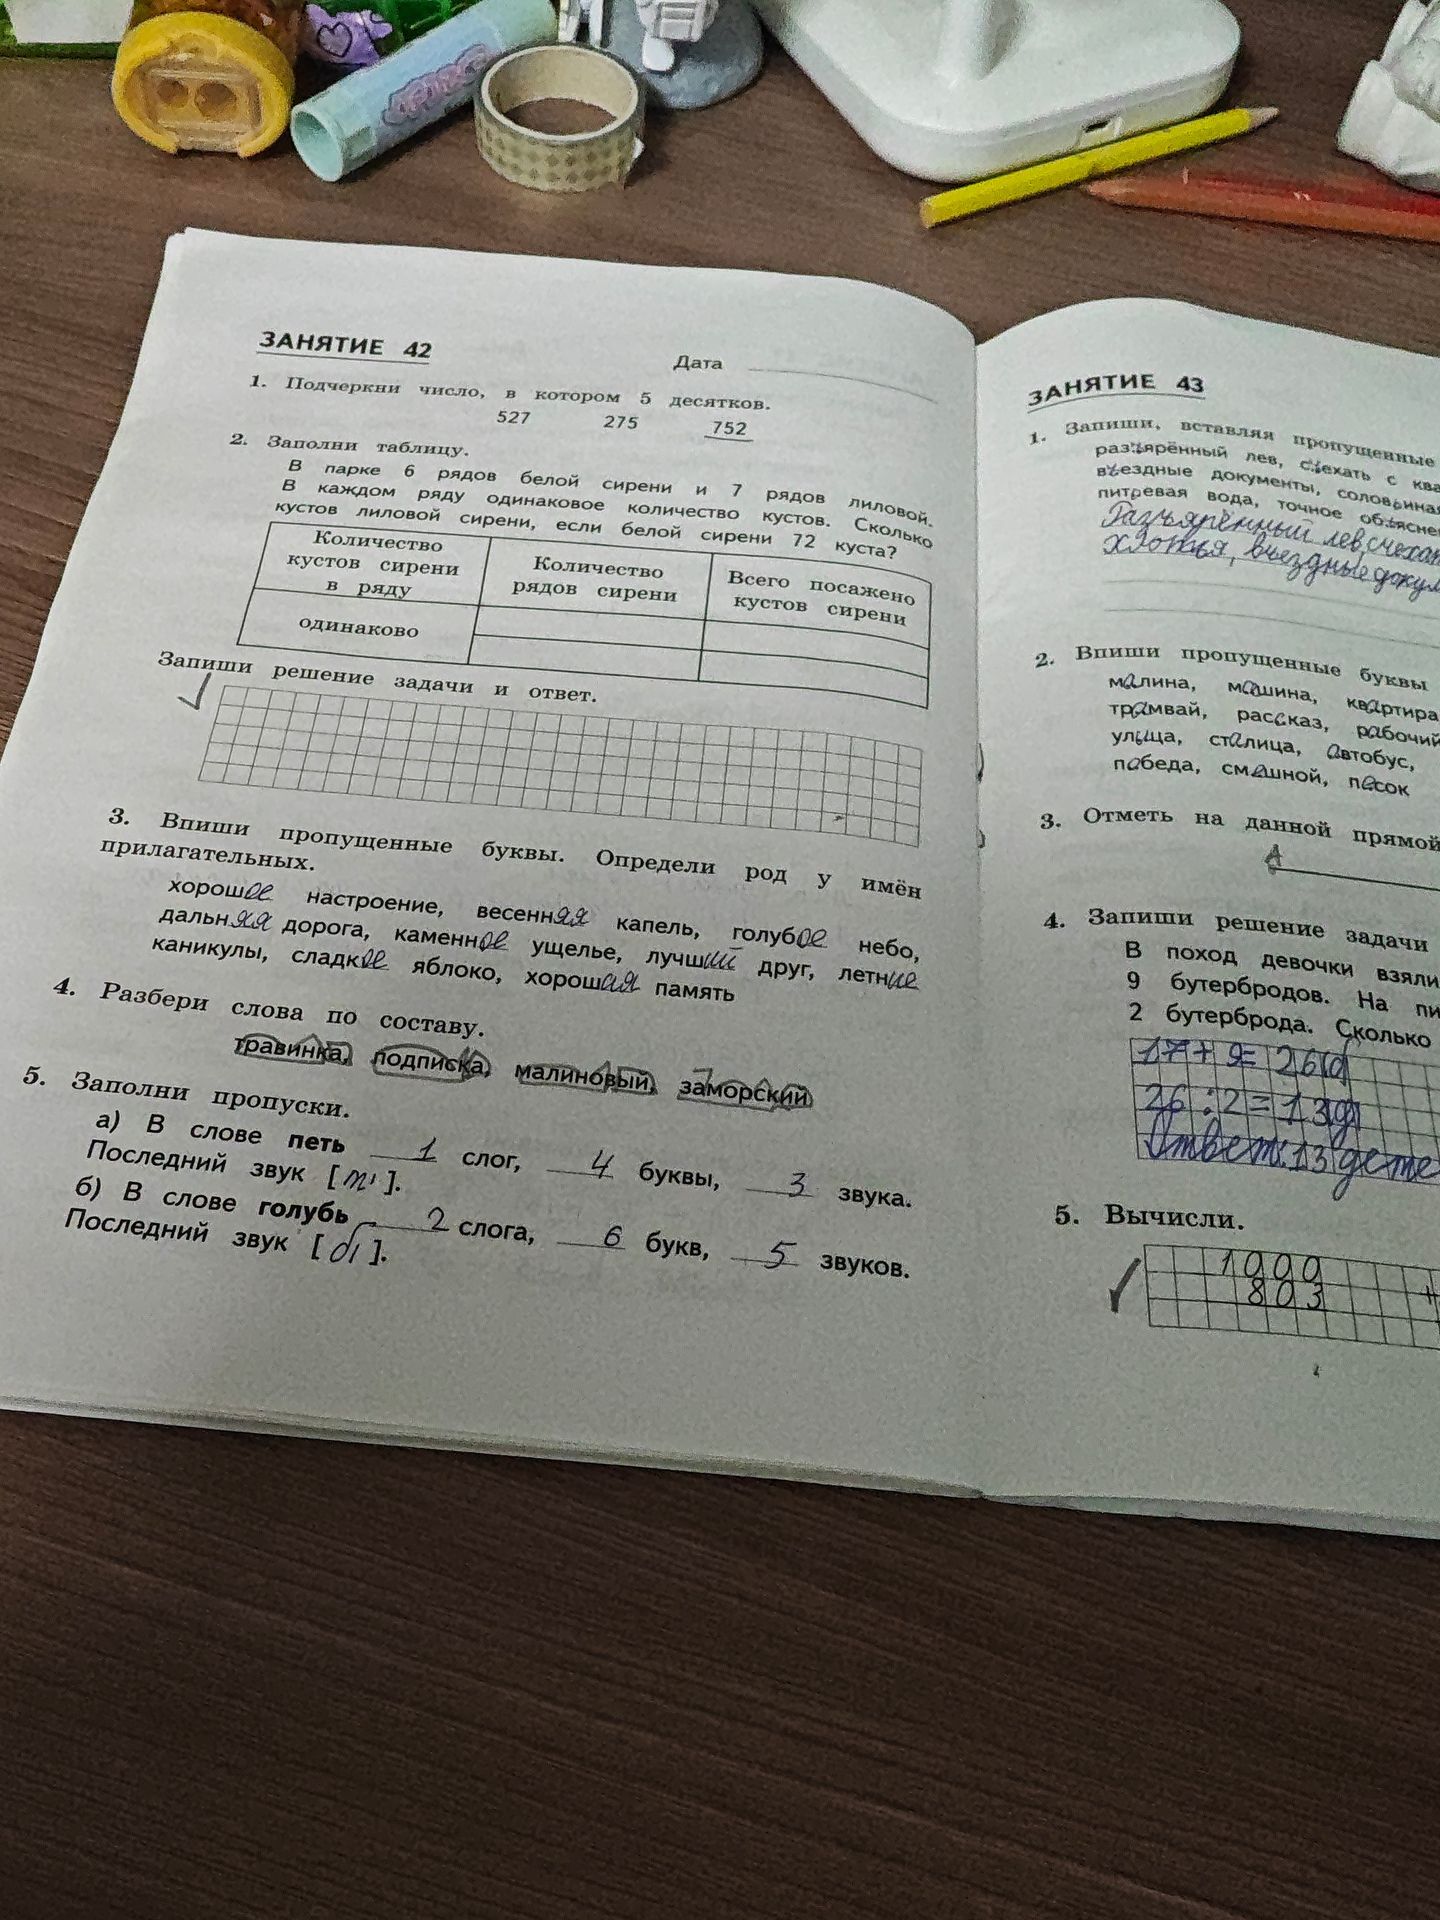 ЗАНЯТИЕ 42
Дата
1. Подчеркни число, в котором 5 десятков.
527 275 752
2. Заполни таблицу.
В парке 6 рядов белой сирени и 7 рядов лиловой.
В каждом ряду одинаковое количество кустов. Сколько
кустов лиловой сирени, если белой сирени 72 куста?
Количество
кустов сирени
в ряду
Количество
рядов сирени
Всего посажено
кустов сирени
одинаково
Запиши решение задачи и ответ.
3. Впиши пропущенные буквы. Определи род у имён
прилагательных.
хорошое настроение, весенняя капель, голубое небо,
дальняя дорога, каменное ущелье, лучший друг, летние
каникулы, сладкое яблоко, хорошая память
4. Разбери слова по составу.
травинка, подписка, малиновый, заморский
5. Заполни пропуски.
а) В слове петь 1 слог, 4 буквы, 3 звука.
Последний звук [т'].
б) В слове голубь 2 слога, 6 букв, 5 звуков.
Последний звук [б'].
ЗАНЯТИЕ 43
1. Запиши, вставляя пропущенные
разъярённый лев, съехать с
въездные документы,
питьевая вода, точное
Разъярённый лев,
въездные
2. Впиши пропущенные буквы
малина, машина, квартира
трамвай, рассказ, рабочий
улица, сталица, автобус,
победа, смешной, песок
3. Отметь на данной прямой
А
4. Запиши решение задачи
В поход девочки взяли
9 бутербродов. На
2 бутерброда. Сколько
17+9=26(б)
26:2=13(д)
Ответ: 13
5. Вычисли.
1000
803
+